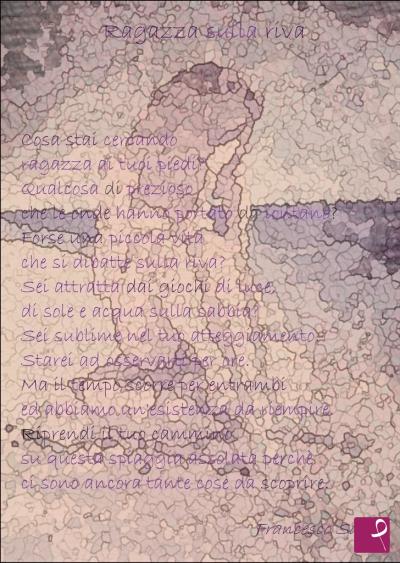 Ragazza sulla riva
Cosa stai cercando
ragazza ai tuoi piedi?
Qualcosa di prezioso
che le onde hanno portato da lontano?
Forse una piccola vita
che si dibatte sulla riva?
Sei attratta dai giochi di luce,
di sole e acqua sulla sabbia?
Sei sublime nel tuo atteggiamento.
Starei ad osservarti per ore.
Ma il tempo scorre per entrambi
ed abbiamo un'esistenza da riempire.
Riprendi il tuo cammino
su questa spiaggia assolata perchè
ci sono ancora tante cose da scoprire.
Francesco